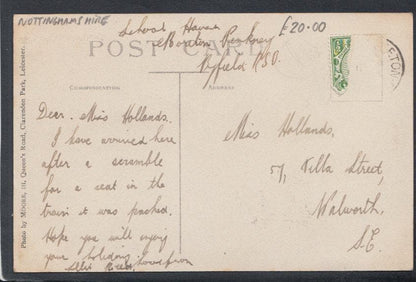 NOTTINGHAMSHIRE
£20.00
School House
Moreton Pinkney
Byfield R.S.O.
POST CARD
COMMUNICATION
Dear Miss Hollands.
I have arrived here
after a scramble
for a seat in the
train it was packed.
Hope you will enjoy
your holiday.
Miss Hollands,
57, Villa Street,
Walworth,
S.E.
Photo by MOORE, 111, Queen's Road, Clarendon Park, Leicester.